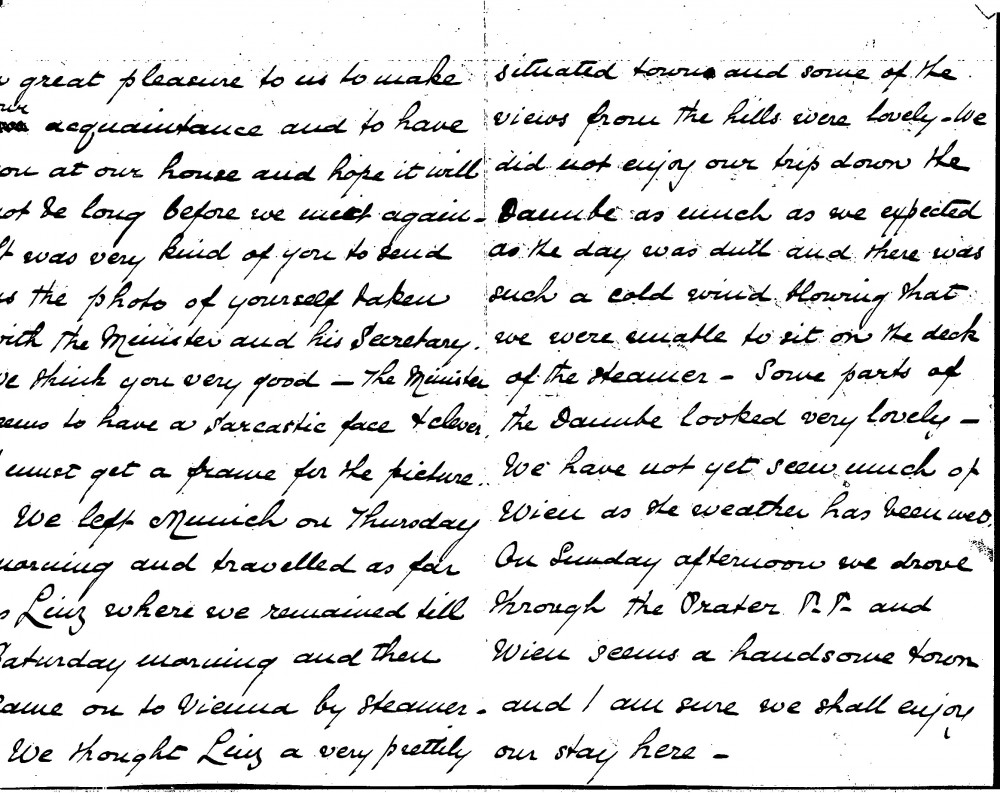 great pleasure to us to make
acquaintance and to have
ou at our house and hope it will
ot be long before we meet again -
t was very kind of you to send
s the photo of yourself taken
ith the Minister and his Secretary.
e think you very good - The Minister
eems to have a sarcastic face & clever.
must get a frame for the picture.
We left Munich on Thursday
orning and travelled as far
s Linz where we remained till
Saturday morning and then
ame on to Vienna by steamer -
We thought Linz a very prettily
situated town and some of the
views from the hills were lovely - We
did not enjoy our trip down the
Danube as much as we expected
as the day was dull and there was
such a cold wind blowing that
we were unable to sit on the deck
of the steamer - Some parts of
the Danube looked very lovely -
We have not yet seen much of
Wien as the weather has been wet.
On Sunday afternoon we drove
through the Prater P.P. and
Wien seems a handsome town
and I am sure we shall enjoy
our stay here -